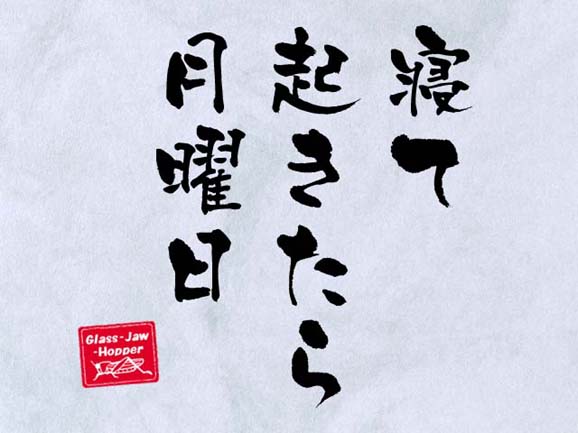 寝て
起きたら
月曜日
Glass-Jaw
-Hopper